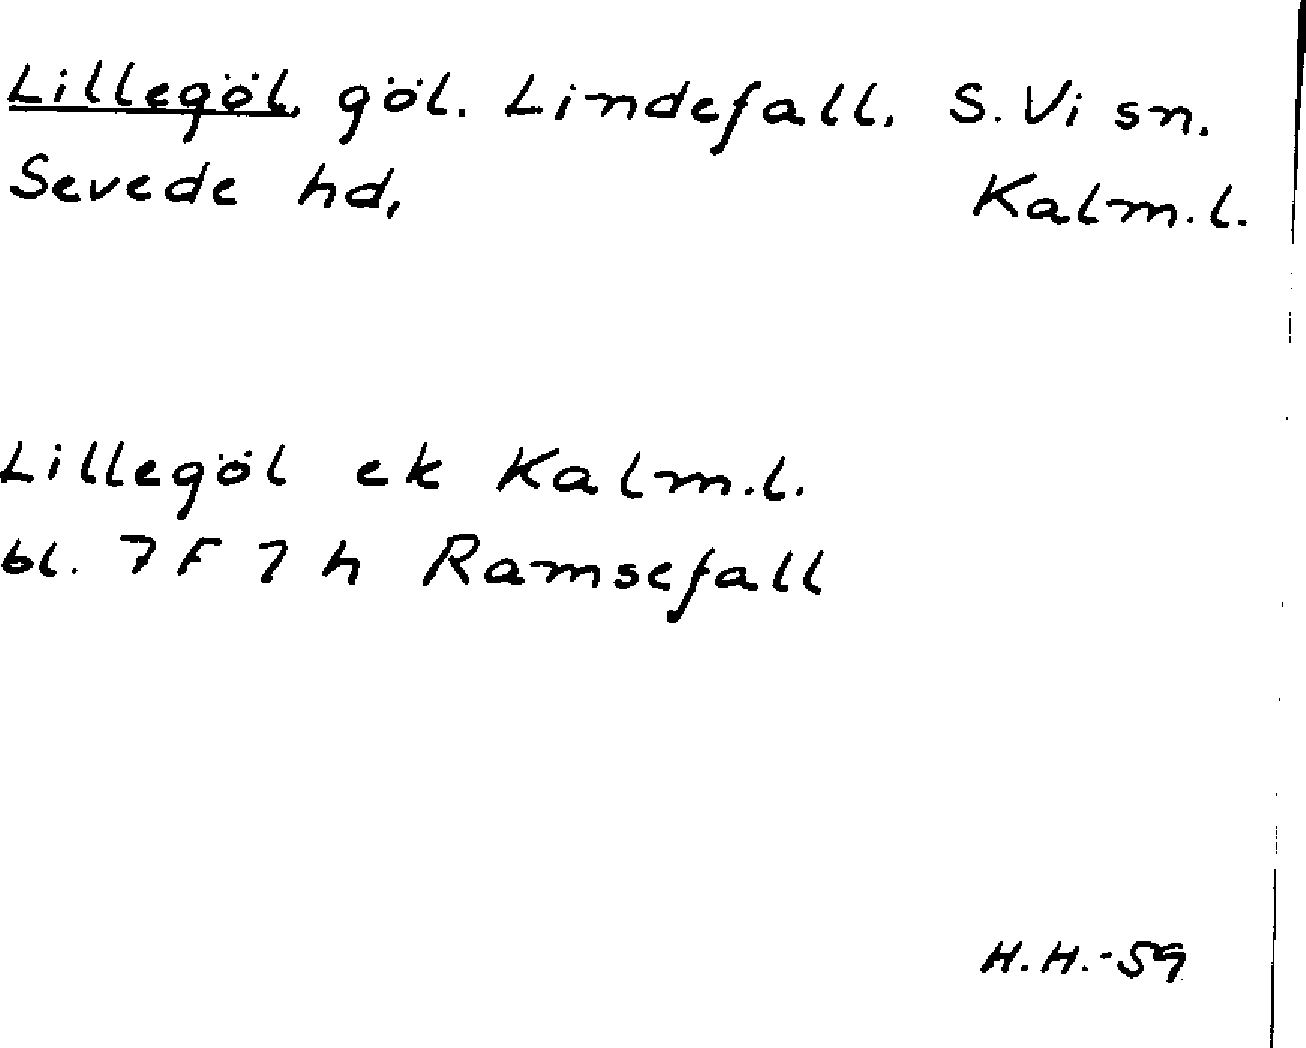 Lillegöl, göl. Lindefall, S. Vi sn.
Sevede hd, Kalm. l.
Lillegöl ek Kalm. l.
bl. 7 F 7 h Ramsefall
H. H. -59